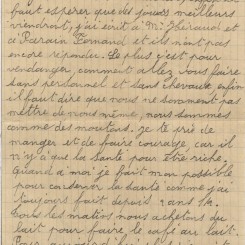 faut espérer que des jours meilleurs
viendront, j'ai écrit à Mr Théraud et
ce Parrain Fernand et ils n'ont pas
encore répondu. Le plus c'est pour
vendanger, comment allez vous faire
sans personnel et sans chevaux enfin
il faut dire que nous ne sommes pas
maître de nous même, nous sommes
comme des moutons. Je te prie de
manger et de faire courage, car il
n'y a que la Santé pour être riche.
Quand a moi je fait mon possible
pour conserver la santé comme j'ai
toujours fait depuis 2 ans ½.
Tous les matins nous achetons du
lait pour faire le café au lait.